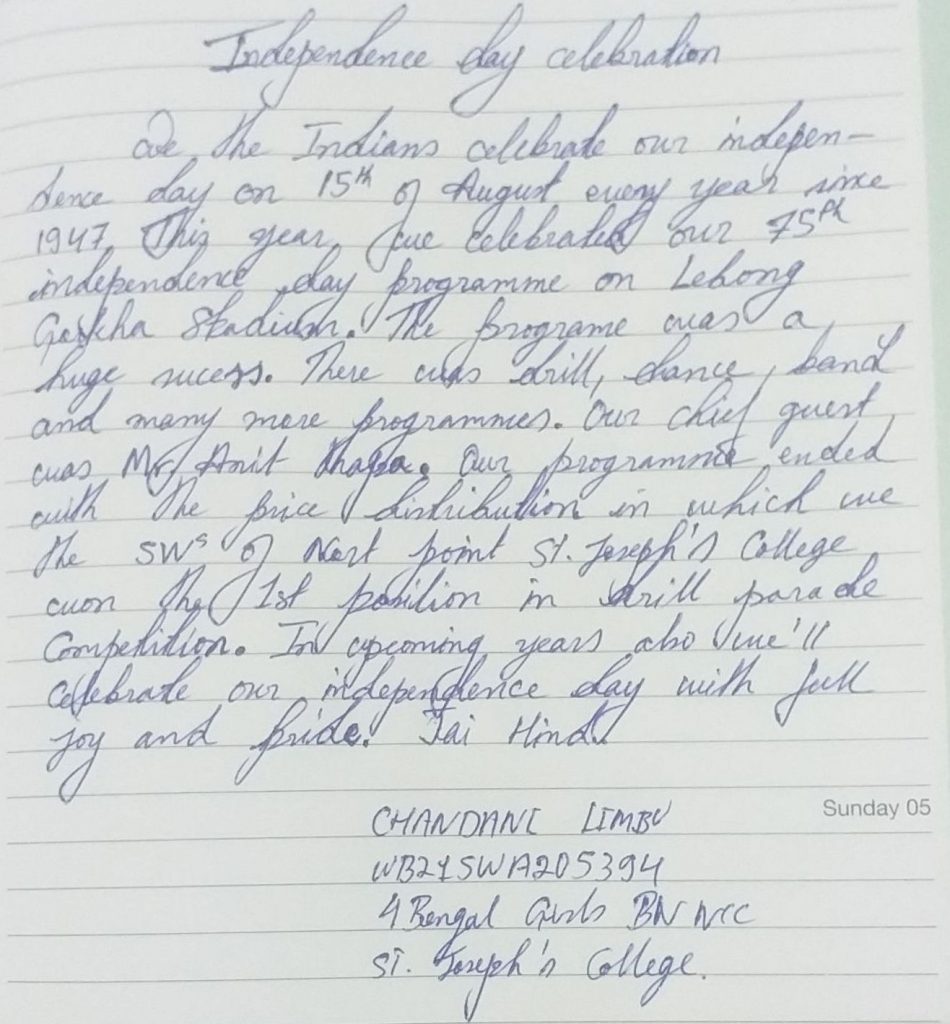 Independence day celebration
We the Indians celebrate our indepen-
dence day on 15th of August every year since
1947. This year, we celebrated our 75th
independence day programme on Lebong
Gorkha Stadium. The programe was a
huge sucess. There was drill, dance, band
and many more programmes. Our chief guest
was Mr. Amit Thapa. Our programme ended
with the price distribution in which we
the SWs of Nort point St. Joseph's College
won the 1st position in drill parade
Competition. In upcoming years also we'll
celebrate our independence day with full
joy and pride. Jai Hind.
Sunday 05
CHANDANI LIMBU
WB21SWA205394
4 Bengal Girls BN NCC
ST. Joseph's College.